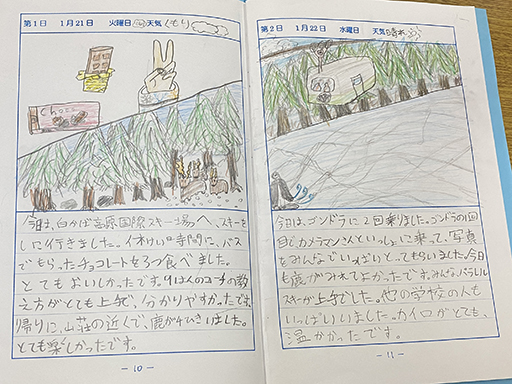 第1日 1月21日 火曜日 天気 くもり
choco
今日は、白かば高原国際スキー場へ、スキーを
しに行きました。休けい時間に、バス
でもらったチョコレートを3つ食べました。
とてもおいしかったです。9はんのコーチの教
え方がとても上手で、分かりやすかったです。
帰りに、山荘の近くで、鹿が4ひきいました。
とても楽しかったです。
-10-
第2日 1月22日 水曜日 天気 晴れ
今日は、ゴンドラに2回乗りました。ゴンドラの1回
目で、カメラマンさんといっしょに乗って、写真
をみんなでいっぱいとってもらいました。今日
も鹿がみれてよかったです。みんなパラレル
スキーが上手でした。他の学校の人も
いっぱいいました。カイロがとても、
温かかったです。
-11-